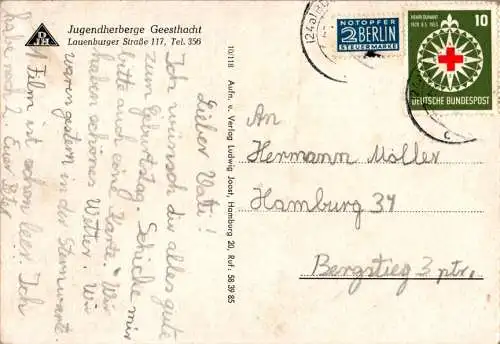 DJH
Jugendherberge Geesthacht
Lauenburger Straße 117, Tel. 356
Lieber Vati!
Ich wünsch dir alles gute
zum Geburtstag. Schicke mir
bitte auch eine Karte. Wir
haben schönes Wetter. Wir
waren gestern in der Sternwarte.
1 Film ist schon leer. Ich
habe noch 2. Euer
10/118 Aufn. u. Verlag Ludwig Joost, Hamburg 20, Ruf: 58 39 85
(24a)
NOTOPFER
2 BERLIN
STEUERMARKE
HENRI DUNANT
1828 8.5. 1953
10
DEUTSCHE BUNDESPOST
An
Hermann Möller
Hamburg 34
Bergstieg 3 ptr.